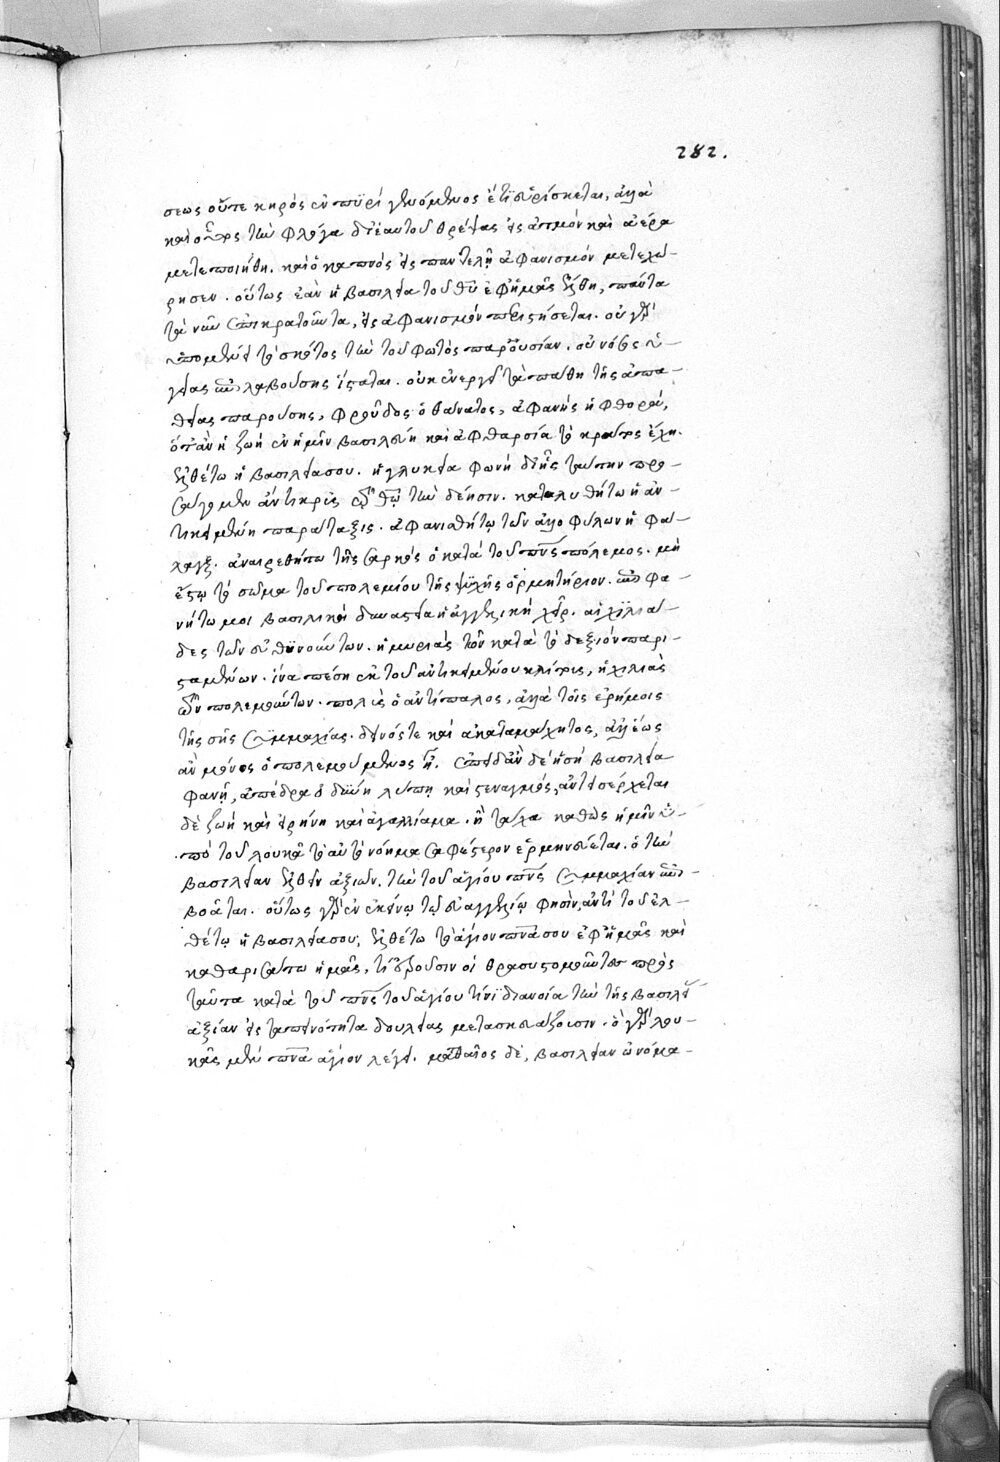 282.
σεως οὔτε κηρὸς ἐν πυρὶ γενόμενος ἔτι εὑρίσκεται, ἀλλὰ
καὶ οὗτος τὴν φλόγα δι' ἑαυτοῦ θρέψας εἰς ἀτμὸν καὶ ἀέρα
μετεποιήθη. καὶ ὁ καπνὸς εἰς παντελῆ ἀφανισμὸν μετεχώ-
ρησεν. οὕτως ἐὰν ἡ βασιλεία τοῦ θυ ἐφ' ἡμᾶς ἔλθη, πάντα
τὰ νῦν ἐπικρατοῦντα, εἰς ἀφανισμὸν περιστήσεται. οὐ γὰρ
ὑπομένει τὸ σκότος τὴν τοῦ φωτὸς παρουσίαν. οὐ νόσος ὑ-
γείας ἐπιλαβούσης ἵσταται. οὐκ ἐνεργεῖ τὰ πάθη τῆς ἀπα-
θείας παρούσης, φροῦδος ὁ θάνατος, ἀφανὴς ἡ φθορά,
ὅταν ἡ ζωὴ ἐν ἡμῖν βασιλεύη καὶ ἀφθαρσία τὸ κράτος ἔχη.
ἐλθέτω ἡ βασιλεία σου. ἡ γλυκεῖα φωνὴ δι' ἧς ταύτην προ-
σάγομεν ἄντικρις τῷ θῷ τὴν δέησιν. καταλυθήτω ἡ ἀν-
τικειμένη παράταξις. ἀφανισθήτω τῶν ἀλλοφύλων ἡ φά-
λαγξ. ἀναιρεθήτω τῆς σαρκὸς ὁ κατὰ τοῦ πνς πόλεμος. μὴ
ἔστω τὸ σῶμα τοῦ πολεμίου τῆς ψυχῆς ὁρμητήριον. ἐπιφα-
νήτω μοι βασιλικὴ δυναστεία ἡ ἀγγελικὴ χείρ. αἱ χιλιά-
δες τῶν εὐθυνούντων. ἡ μυριὰς τῶν κατὰ τὸ δεξιὸν παρι-
σταμένων. ἵνα πέση ἐκ τοῦ ἀντικειμένου κλίτους, ἡ χιλιὰς
τῶν πολεμούντων. πολὺς ὁ ἀντίπαλος, ἀλλὰ τοῖς ἐρήμοις
τῆς σῆς συμμαχίας. δεινός τε καὶ ἀκαταμάχητος, ἀλλ' ἕως
ἂν μόνος ὁ πολεμούμενος ᾖ. ἐπειδὰν δὲ ἡ σὴ βασιλεία
φανῆ, ἀπέδρα ὀδύνη λύπη καὶ στεναγμός, ἀντεισέρχεται
δὲ ζωὴ καὶ εἰρήνη καὶ ἀγαλλίαμα. ἢ τάχα καθὼς ἡμῖν ὑ-
πὸ τοῦ λουκᾶ τὸ αὐτὸ νόημα σαφέστερον ἑρμηνεύεται. ὁ τὴν
βασιλείαν ἐλθεῖν ἀξιῶν. τὴν τοῦ ἁγίου πνς συμμαχίαν ἐπι-
βοᾶται. οὕτως γὰρ ἐν ἐκείνῳ τῷ εὐαγγελίῳ φησὶν, ἀντὶ τοῦ ἐλ-
θέτω ἡ βασιλεία σου, ἐλθέτω τὸ ἅγιον πνα σου ἐφ' ἡμᾶς καὶ
καθαρισάτω ἡμᾶς, τί ἐροῦσιν οἱ θρασυστομοῦντες πρὸς
ταῦτα κατὰ τοῦ πνς τοῦ ἁγίου τίνι διανοία τὴν τῆς βασιλεί
ἀξίαν εἰς ταπεινότητα δουλείας μετασκευάζουσιν. ὁ γὰρ λου-
κᾶς μὲν πνα ἅγιον λέγει. ματθαῖος δὲ, βασιλείαν ὠνόμα-